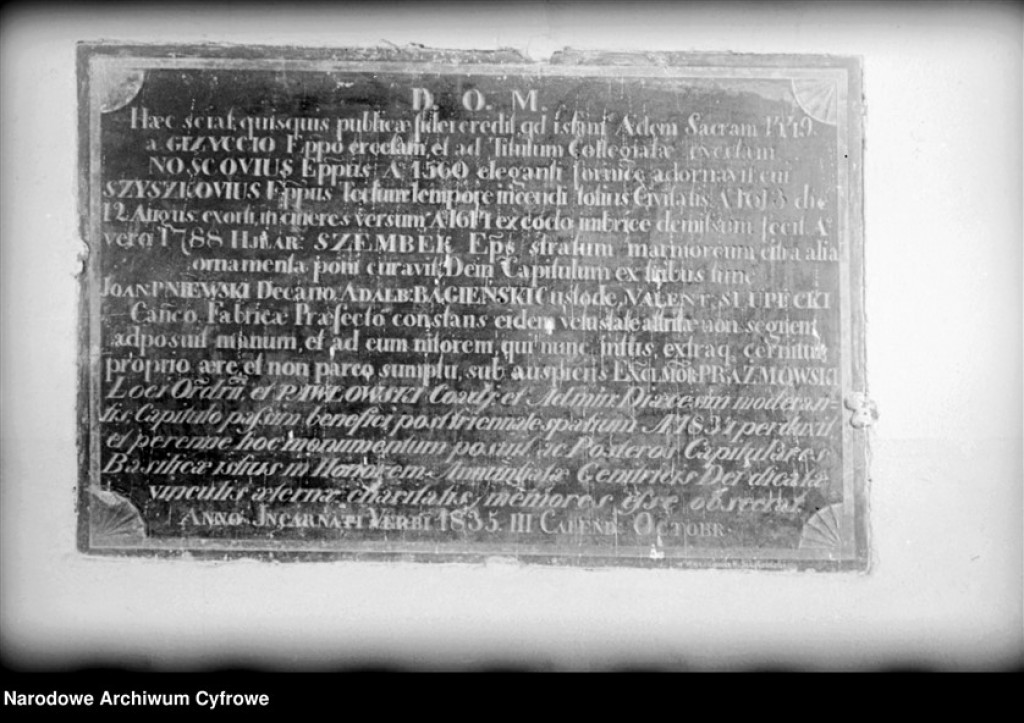 D. O. M.
Hæc sciat, quisquis publicæ fidei credit, qd istam Ædem Sacram 1449.
a GIZYCCIO Eppo erectam, et ad Titulum Collegiatæ evectam
NOSCOVIUS Eppus Aº 1560 eleganti fornice adornavit cui
SZYSZKOVIUS Eppus Tectum tempore incendi totius Civitatis A 1613 die
12 Augus. exorti, in cineres versum, A 1614 ex cocto imbrice demissum fecit. Aº
vero 1788 HILAR: SZEMBEK Eps stratum marmoreum alia
ornamenta poni curavit, Dein Capitulum ex tribus tunc
JOAN PNIEWSKI Decano, ADALB: BAGIENSKI Custode, VALENT: SŁUPECKI
Canco. Fabricæ Præfecto constans eidem vetustate attritæ non segnem
adposuit manum, et ad eum nitorem, qui nunc intus, extraq cernitur,
proprio ære, et non parco sumptu, sub auspiciis EXCLMOR: PRAŻMOWSKI
Loci Ordrii, et PAWŁOWSKI Coadj: et Admin: Diæcesim moderan-
tis, Capitulo passim benefici, post triennale spatium A 1834 perduxit
et perenne hoc monumentum posuit ac Posteros Capitulares
Basilicæ istius in Honorem Annuntiatæ Genitricis Dei dicatæ
vinculis æternæ charitatis, memores esse obsecrat.
ANNO INCARNATI VERBI 1835 III CALEND: OCTOBR.
Narodowe Archiwum Cyfrowe